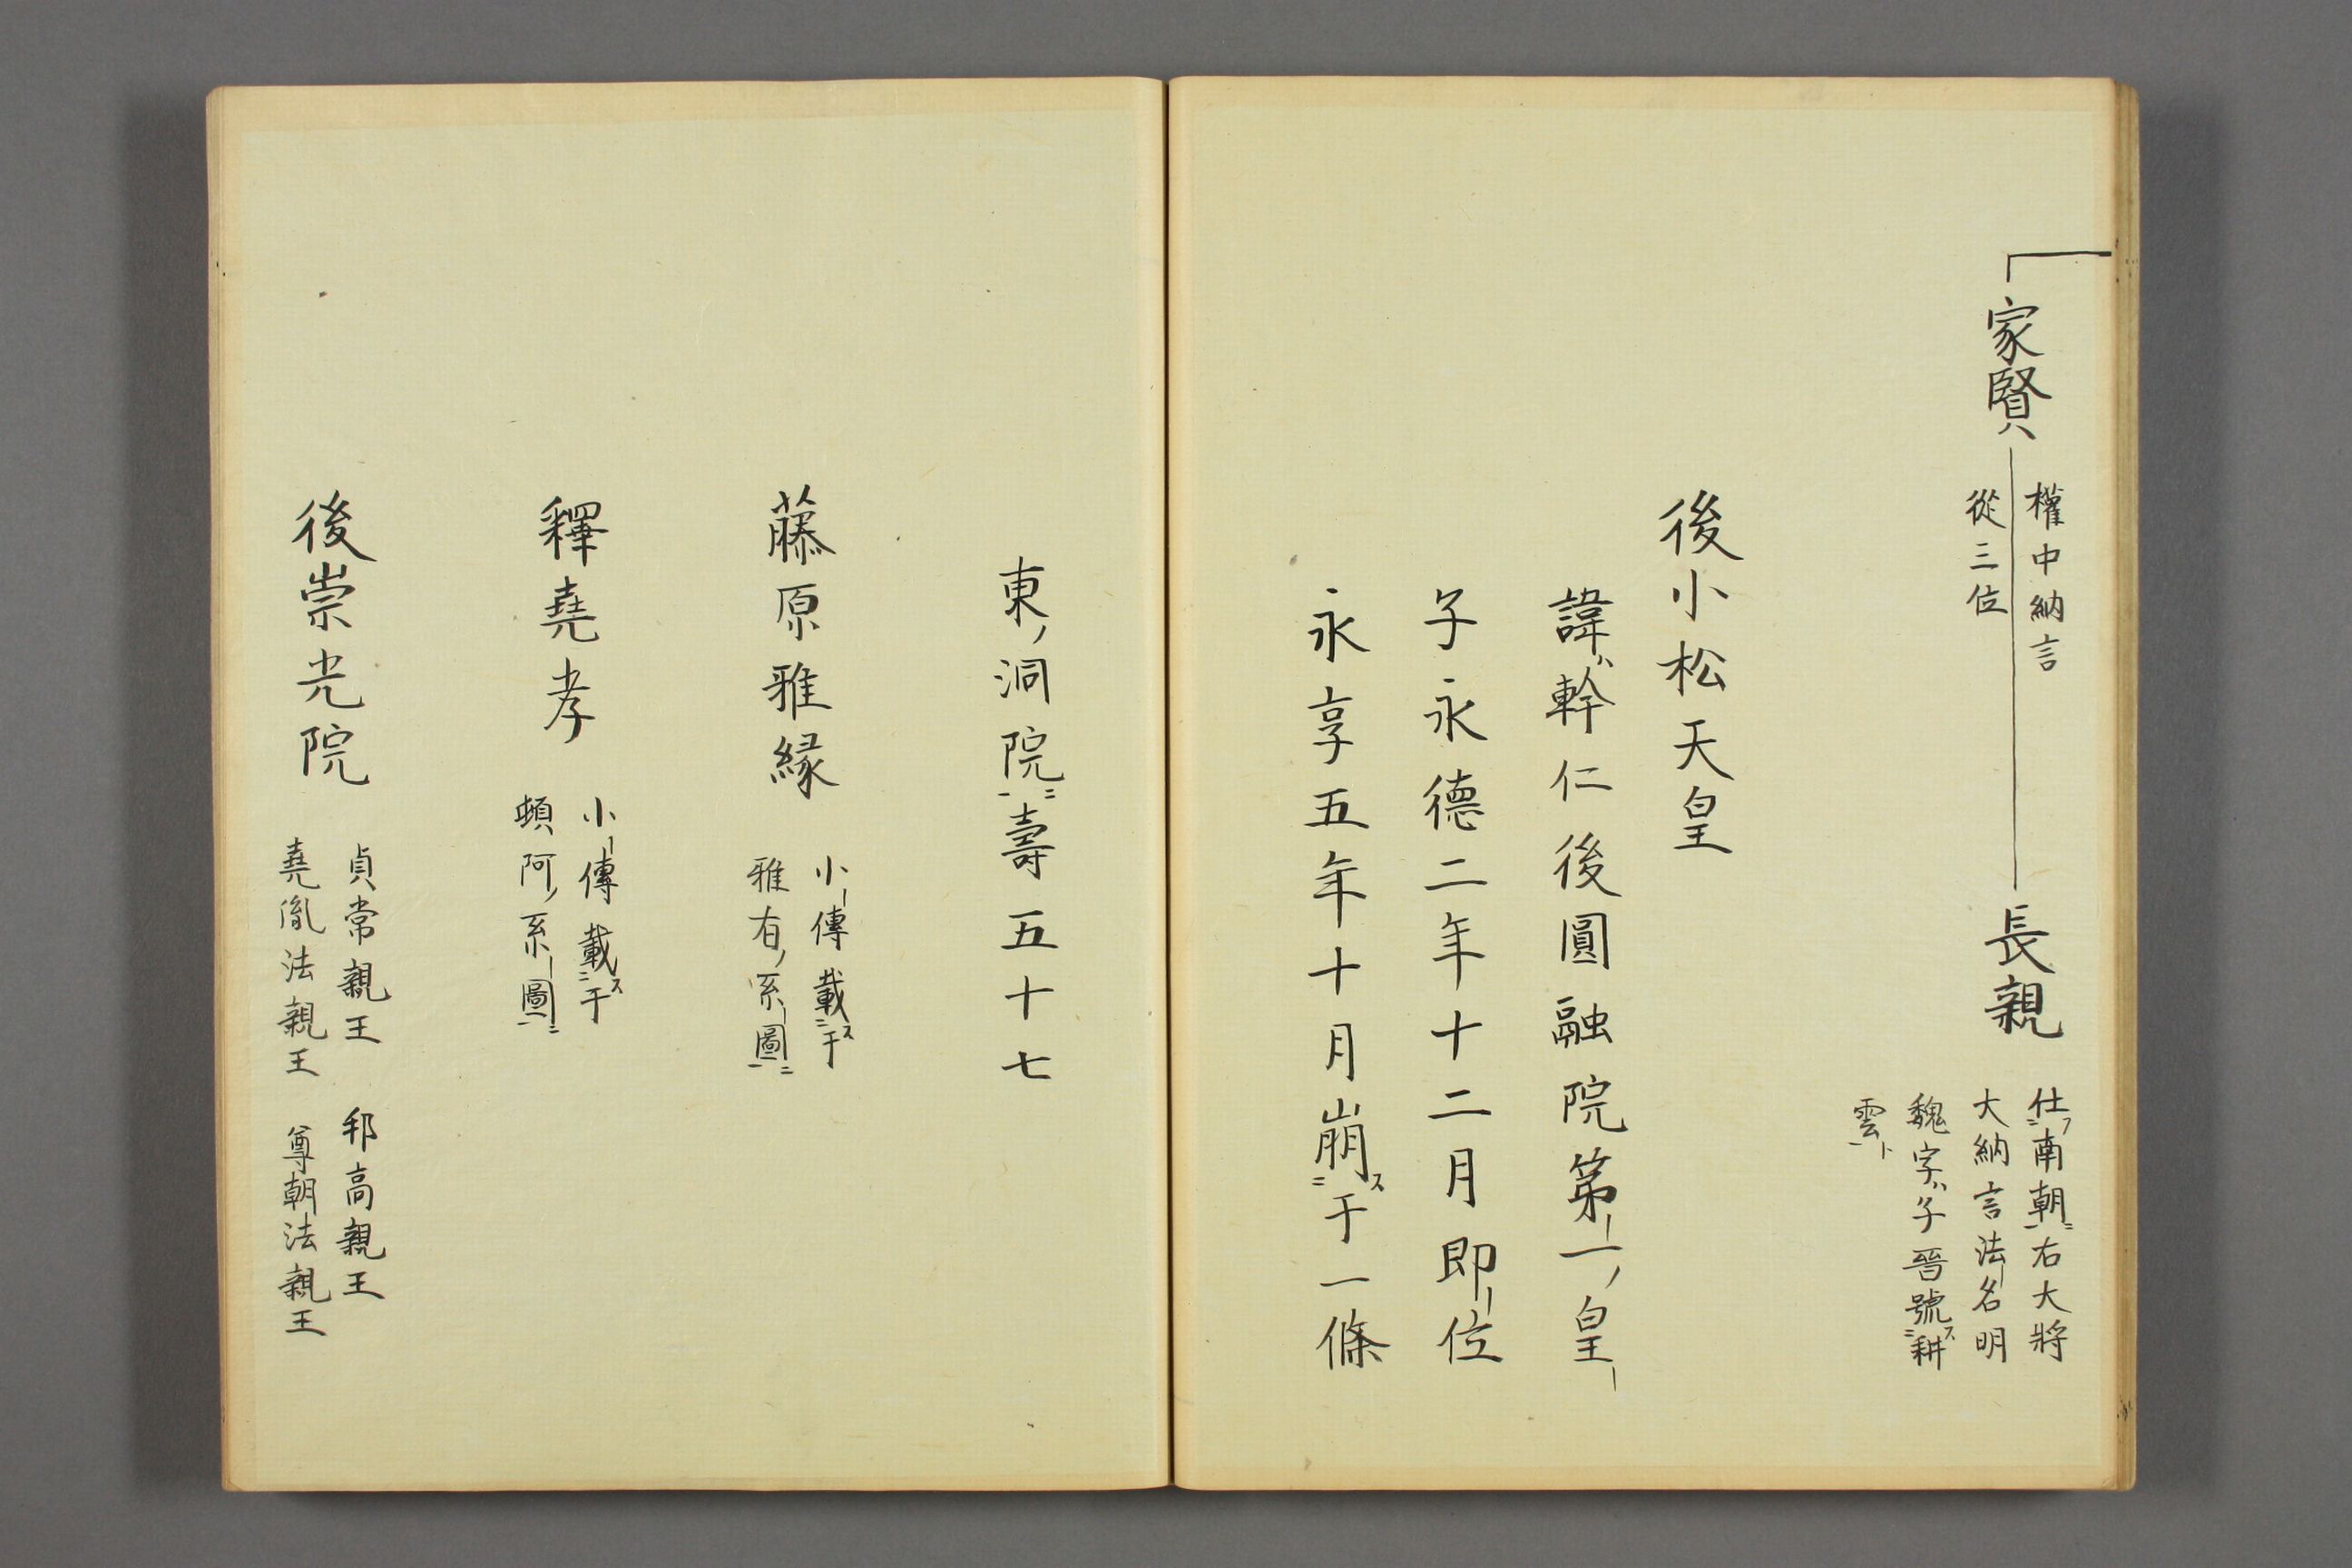 家賢
權中納言
從三位
長親
仕フ二南朝一ニ右大將
大納言法名明
魏字ハ子晉號ス二耕
雲一ト
後小松天皇
諱ハ幹仁後圓融院第一ノ皇
子永德二年十二月即位
永享五年十月崩ス二于一條
東ノ洞院一ニ壽五十七
藤原雅縁
小傳載ス二于
雅有ノ系圖一ニ
釋堯孝
小傳載ス二于
頓阿ノ系圖一ニ
後崇光院
貞常親王 邦高親王
堯胤法親王 尊朝法親王